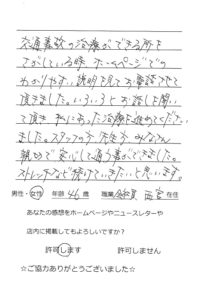 交通事故の治療ができる所を
さがしている時ホームページでの
わかりやすい説明を見てお電話させて
頂きました。いろいろとお話しを聞い
て頂き私にあった治療を進めてください
ました。スタッフの方先生方みなさん
親切で安心して通う事ができました。
ストレッチなど続けていきたいと思います。
男性・女性 年齢 46歳 職業 会社員 在住
あなたの感想をホームページやニュースレターや
店内に掲載してもよろしいですか？
許可します 許可しません
☆ご協力ありがとうございました☆